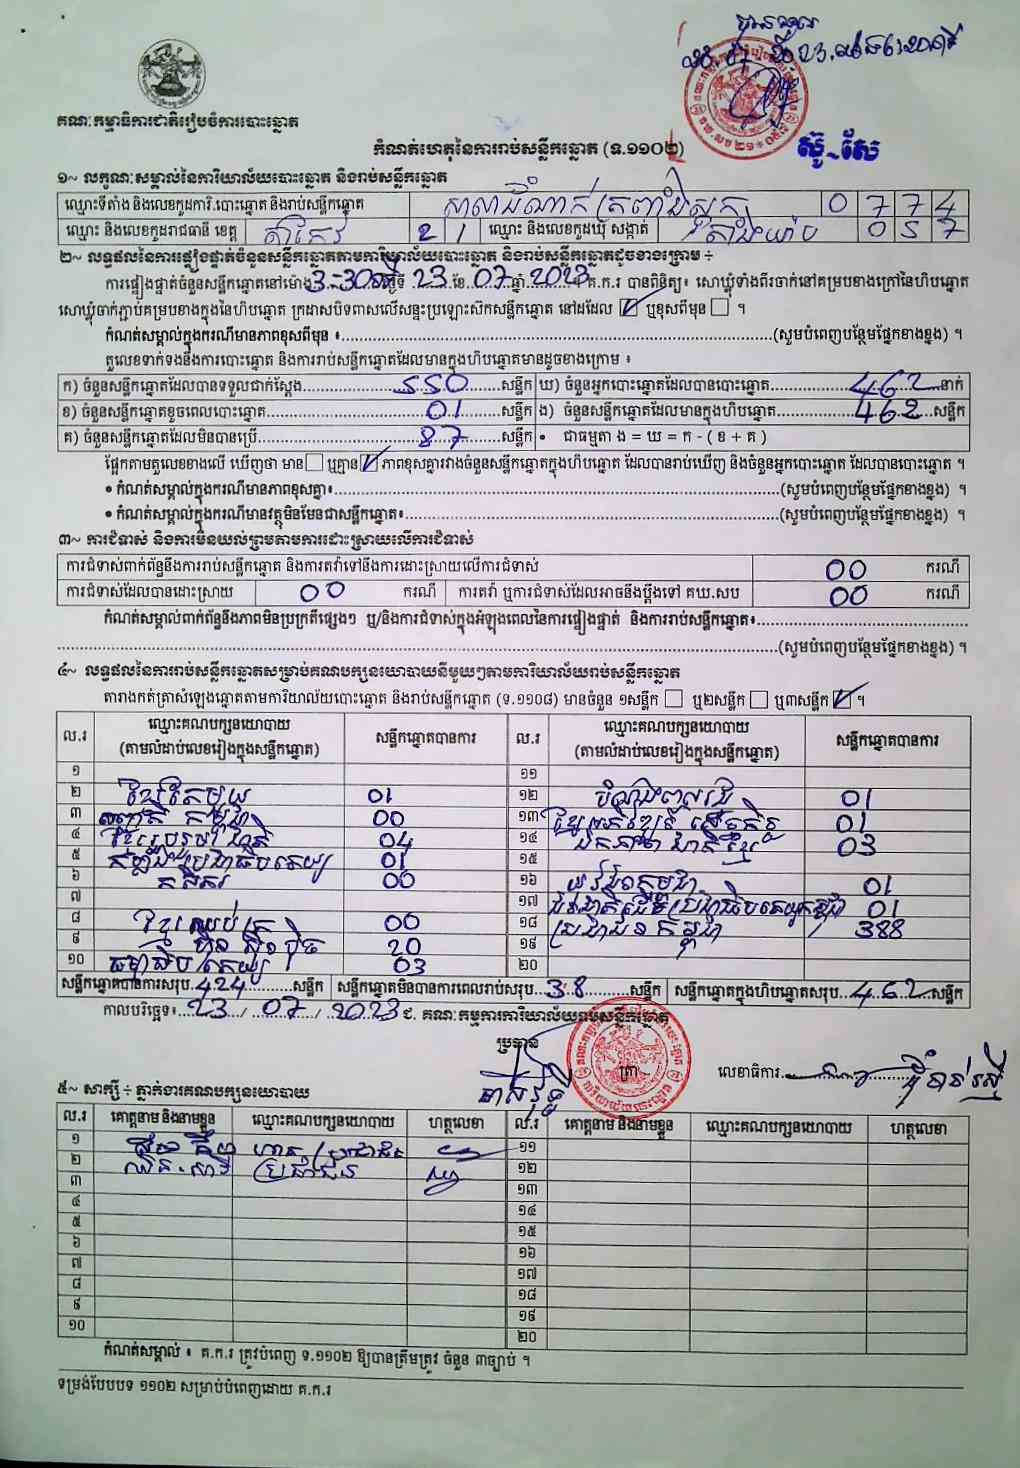 គណៈកម្មាធិការជាតិរៀបចំការបោះឆ្នោត
បានចូល
ស៊ូ~សែ
កំណត់ហេតុនៃការរាប់សន្លឹកឆ្នោត (ទ.១១០២)
១~ លក្ខណៈសម្គាល់នៃការិយាល័យបោះឆ្នោត និងរាប់សន្លឹកឆ្នោត
ឈ្មោះទីតាំង និងលេខកូដការិ.បោះឆ្នោត និងរាប់សន្លឹកឆ្នោត 0 7 7 4
ឈ្មោះ និងលេខកូដរាជធានី ខេត្ត តាកែវ 2 1 ឈ្មោះ និងលេខកូដឃុំ សង្កាត់ 0 5 7
២~ លទ្ធផលនៃការផ្ទៀងផ្ទាត់ចំនួនសន្លឹកឆ្នោតតាមការិយាល័យបោះឆ្នោត និងរាប់សន្លឹកឆ្នោតដូចខាងក្រោម ÷
ការផ្ទៀងផ្ទាត់ចំនួនសន្លឹកឆ្នោតនៅម៉ោង 3-30 ថ្ងៃទី 23 ខែ 07 ឆ្នាំ 2023 គ.ក.រ បានពិនិត្យ៖ សោឃ្លុំទាំងពីរចាក់នៅគម្របខាងក្រៅនៃហិបឆ្នោត
សោឃ្លុំចាក់ភ្ជាប់គម្របខាងក្នុងនៃហិបឆ្នោត ក្រដាសបិទពាសលើសន្ទះប្រឡោះស៊កសន្លឹកឆ្នោត នៅដដែល ☑ ឬខុសពីមុន ☐ ។
កំណត់សម្គាល់ក្នុងករណីមានភាពខុសពីមុន ៖ (សូមបំពេញបន្ថែមផ្នែកខាងខ្នង) ។
តួលេខទាក់ទងនឹងការបោះឆ្នោត និងការរាប់សន្លឹកឆ្នោតដែលមានក្នុងហិបឆ្នោតមានដូចខាងក្រោម ៖
ក) ចំនួនសន្លឹកឆ្នោតដែលបានទទួលជាក់ស្តែង 550 សន្លឹក ឃ) ចំនួនអ្នកបោះឆ្នោតដែលបានបោះឆ្នោត 462 នាក់
ខ) ចំនួនសន្លឹកឆ្នោតខូចពេលបោះឆ្នោត 01 សន្លឹក ង) ចំនួនសន្លឹកឆ្នោតដែលមានក្នុងហិបឆ្នោត 462 សន្លឹក
គ) ចំនួនសន្លឹកឆ្នោតដែលមិនបានប្រើ 87 សន្លឹក • ជាធម្មតា ង = ឃ = ក - ( ខ + គ )
ផ្អែកតាមតួលេខខាងលើ ឃើញថា មាន ☐ ឬគ្មាន ☑ ភាពខុសគ្នារវាងចំនួនសន្លឹកឆ្នោតក្នុងហិបឆ្នោត ដែលបានរាប់ឃើញ និងចំនួនអ្នកបោះឆ្នោត ដែលបានបោះឆ្នោត ។
• កំណត់សម្គាល់ក្នុងករណីមានភាពខុសគ្នា៖ (សូមបំពេញបន្ថែមផ្នែកខាងខ្នង) ។
• កំណត់សម្គាល់ក្នុងករណីមានវត្ថុមិនមែនជាសន្លឹកឆ្នោត៖ (សូមបំពេញបន្ថែមផ្នែកខាងខ្នង) ។
៣~ ការជំទាស់ និងការមិនយល់ព្រមតាមការដោះស្រាយលើការជំទាស់
ការជំទាស់ពាក់ព័ន្ធនឹងការរាប់សន្លឹកឆ្នោត និងការតវ៉ាទៅនឹងការដោះស្រាយលើការជំទាស់ 00 ករណី
ការជំទាស់ដែលបានដោះស្រាយ 00 ករណី ការតវ៉ា ឬការជំទាស់ដែលអាចនឹងប្តឹងទៅ គឃ.សប 00 ករណី
កំណត់សម្គាល់ពាក់ព័ន្ធនឹងភាពមិនប្រក្រតីផ្សេងៗ ឬ/និងការជំទាស់ក្នុងអំឡុងពេលនៃការផ្ទៀងផ្ទាត់ និងការរាប់សន្លឹកឆ្នោត៖
(សូមបំពេញបន្ថែមផ្នែកខាងខ្នង) ។
៤~ លទ្ធផលនៃការរាប់សន្លឹកឆ្នោតសម្រាប់គណបក្សនយោបាយនីមួយៗតាមការិយាល័យរាប់សន្លឹកឆ្នោត
តារាងកត់ត្រាសំឡេងឆ្នោតតាមការិយាល័យបោះឆ្នោត និងរាប់សន្លឹកឆ្នោត (ទ.១១០៨) មានចំនួន ១សន្លឹក ☐ ឬ២សន្លឹក ☐ ឬ៣សន្លឹក ☑ ។
ល.រ ឈ្មោះគណបក្សនយោបាយ (តាមលំដាប់លេខរៀងក្នុងសន្លឹកឆ្នោត) សន្លឹកឆ្នោតបានការ ល.រ ឈ្មោះគណបក្សនយោបាយ (តាមលំដាប់លេខរៀងក្នុងសន្លឹកឆ្នោត) សន្លឹកឆ្នោតបានការ
១ ១១
២ ខ្មែរតែមួយ 01 ១២ 01
៣ 00 ១៣ 01
៤ ខ្មែររួបរួមជាតិ 04 ១៤ ឯកភាពជាតិខ្មែរ 03
៥ កម្លាំងប្រជាធិបតេយ្យ 01 ១៥
៦ កសិករ 00 ១៦ យុវជនកម្ពុជា 01
៧ ១៧ 01
៨ ខ្មែរឈប់ក្រ 00 ១៨ ប្រជាជនកម្ពុជា 388
៩ ហ៊្វុនស៊ិនប៉ិច 20 ១៩
១០ ធម្មាធិបតេយ្យ 03 ២០
សន្លឹកឆ្នោតបានការសរុប 424 សន្លឹក សន្លឹកឆ្នោតមិនបានការពេលរាប់សរុប 38 សន្លឹក សន្លឹកឆ្នោតក្នុងហិបឆ្នោតសរុប 462 សន្លឹក
កាលបរិច្ឆេទ៖ 23 / 07 / 2023 ជ. គណៈកម្មការការិយាល័យរាប់សន្លឹកឆ្នោត
ប្រធាន
ត្រា លេខាធិការ
៥~ សាក្សី ÷ ភ្នាក់ងារគណបក្សនយោបាយ
ល.រ គោត្តនាម និងនាមខ្លួន ឈ្មោះគណបក្សនយោបាយ ហត្ថលេខា ល.រ គោត្តនាម និងនាមខ្លួន ឈ្មោះគណបក្សនយោបាយ ហត្ថលេខា
១ ១១
២ ប្រជាជន ១២
៣ ១៣
៤ ១៤
៥ ១៥
៦ ១៦
៧ ១៧
៨ ១៨
៩ ១៩
១០ ២០
កំណត់សម្គាល់ ៖ គ.ក.រ ត្រូវបំពេញ ទ.១១០២ ឱ្យបានត្រឹមត្រូវ ចំនួន ៣ច្បាប់ ។
ទម្រង់បែបបទ ១១០២ សម្រាប់បំពេញដោយ គ.ក.រ